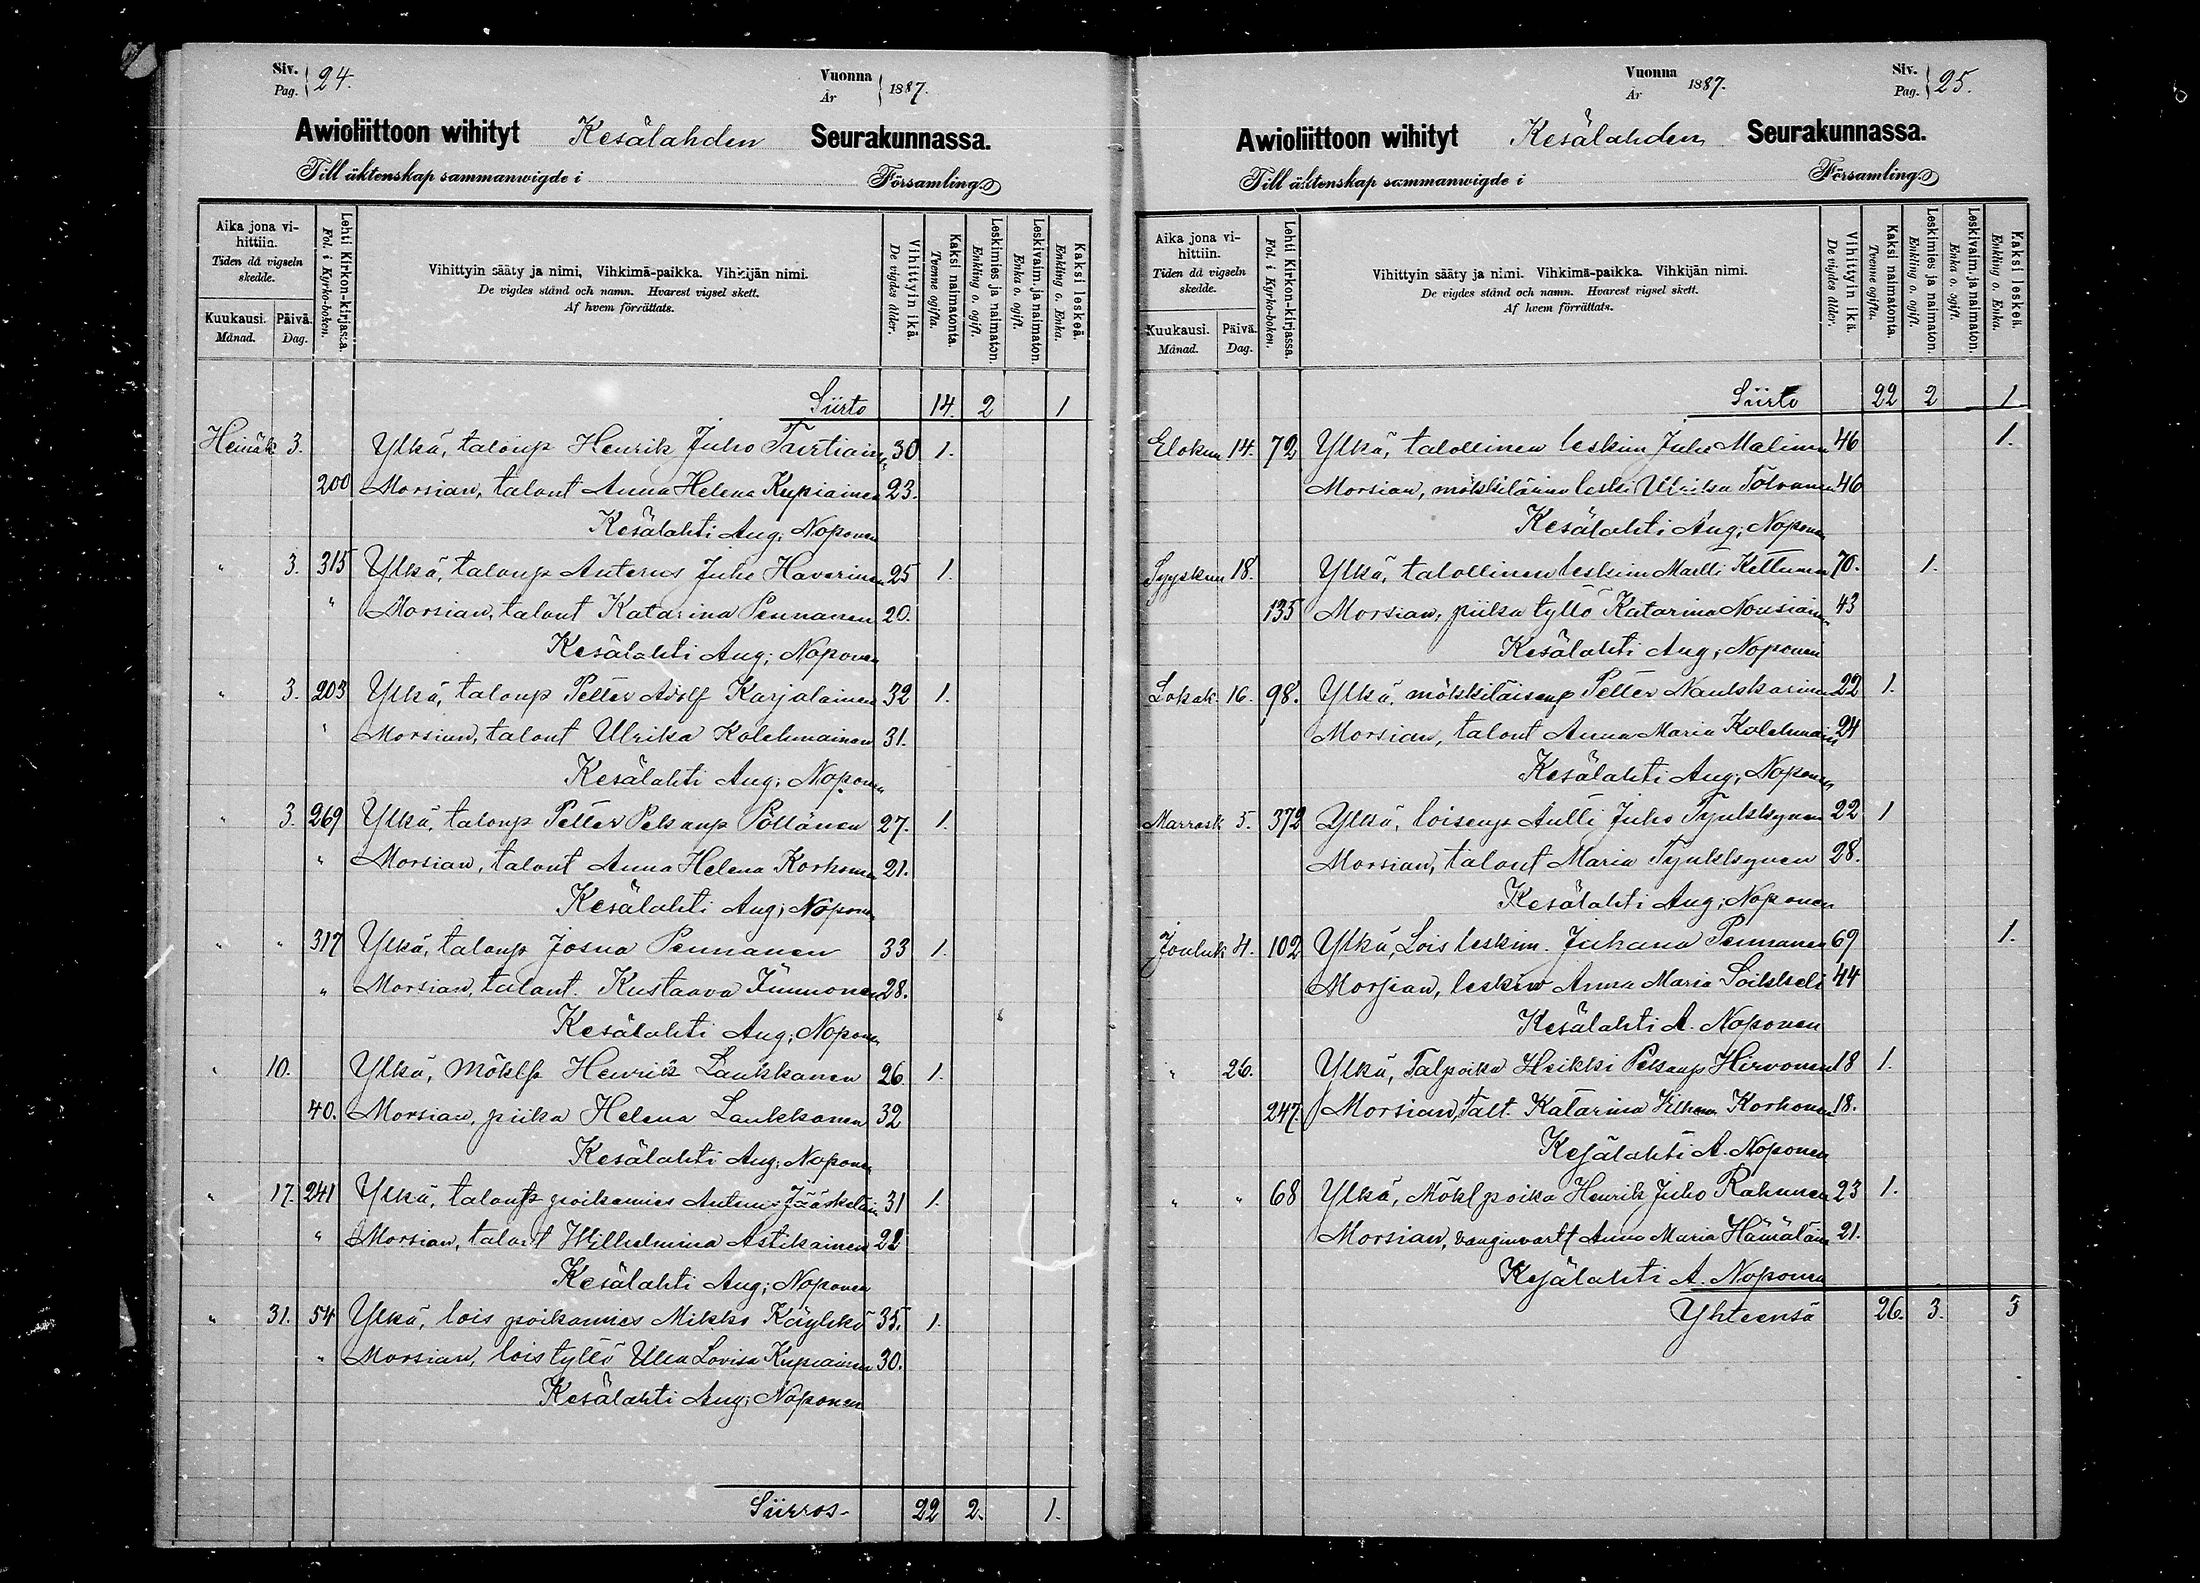 Siv. Pag. 24.
Vuonna År 1887.
Awioliittoon wihityt Kesälahden Seurakunnassa.
Till äktenskap sammanwigde i Församling
Aika jona vihittiin. Tiden då vigseln skedde.
Kuukausi. Månad.
Päivä. Dag.
Lehti Kirkon-kirjassa. Fol. i Kyrko-boken.
Vihittyin sääty ja nimi, Vihkimä-paikka. Vihkijän nimi.
De vigdes stånd och namn. Hvarest vigsel skett.
Af hvem förrättats.
Vihittyin ikä. De vigdes ålder.
Kaksi naimatonta. Tvenne ogifta.
Leskimies ja naimaton. Enkling o. ogift.
Leskivaim. ja naimaton. Enka o. ogift.
Kaksi leskeä. Enkling o. Enka.
Siirto 14. 2 1
Heinäk 3. Ylkä, taloup Henrik Juho 30 1.
200 Morsian, talont Anna Helena Kupiainen 23.
Kesälahti Aug; Noponen
" 3. 315 Ylkä, taloup Anterus Juho Haverinen 25 1.
" Morsian, talont Katarina Pennanen 20.
Kesälahti Aug; Noponen
" 3. 203 Ylkä, taloup Petter Adolf Karjalainen 32 1.
" Morsian, talont Ulrika Kolehmainen 31.
Kesälahti Aug; Noponen
" 3. 269 Ylkä, taloup Petter Pekanp Pöllänen 27. 1.
" Morsian, talont Anna Helena Korhonen 21.
Kesälahti Aug; Noponen
" " 317 Ylkä, taloup Josua Pennanen 33 1.
" Morsian, talont. Kustaava Immonen 28.
Kesälahti Aug; Noponen
" 10. Ylkä, Henrik Laukkanen 26 1.
40. Morsian, piika Helena Laukkanen 32
Kesälahti Aug; Noponen
" 17. 241 Ylkä, taloup poikamies Anterus Jääskeläin 31 1.
" Morsian, talont Wilhelmina Astikainen 22
Kesälahti Aug; Noponen
" 31. 54 Ylkä, lois poikamies Mikko Käyhkö 35. 1.
" Morsian, lois tyttö Ulla Lovisa Kupiainen 30.
Kesälahti Aug; Noponen
Siirros 22 2. 1.
Vuonna År 1887.
Siv. Pag. 25.
Awioliittoon wihityt Kesälahden Seurakunnassa.
Till äktenskap sammanwigde i Församling
Aika jona vihittiin. Tiden då vigseln skedde.
Kuukausi. Månad.
Päivä. Dag.
Lehti Kirkon-kirjassa. Fol. i Kyrko-boken.
Vihittyin sääty ja nimi. Vihkimä-paikka. Vihkijän nimi.
De vigdes stånd och namn. Hvarest vigsel skett.
Af hvem förrättats.
Vihittyin ikä. De vigdes ålder.
Kaksi naimatonta. Tvenne ogifta.
Leskimies ja naimaton. Enkling o. ogift.
Leskivaim. ja naimaton. Enka o. ogift.
Kaksi leskeä. Enkling o. Enka.
Siirto 22 2 1
Elokuu 14. 72 Ylkä, talollinen leskim Juho Malinen 46 1.
Morsian, leski Ulrika Tolvanen 46
Kesälahti Aug; Noponen
Syyskuu 18. Ylkä, talollinen leskim Matti Kettunen 70. 1.
135 Morsian, piika tyttö Katarina Nousiain 43
Kesälahti Aug; Noponen
Lokak. 16. 98. Ylkä, mökkiläisenp Petter Naukkarinen 22 1.
Morsian, talont Anna Maria Kolehmain 24
Kesälahti Aug; Noponen
Marrask 5. 372 Ylkä, loisenp Antti Juho Tynkkynen 22 1
Morsian, talont Maria Tynkkynen 28.
Kesälahti Aug; Noponen
Jouluk 4. 102 Ylkä, Lois leskim. Juhana Pennanen 69 1.
Morsian, leskiv Anna Maria Soikkeli 44
Kesälahti A. Noponen
" 26. Ylkä, Talpoika Heikki Pekanp Hirvonen 18 1.
247. Morsian, Talt. Katarina Korhonen 18.
Kesälahti A. Noponen
" " 68 Ylkä, Mökl poika Henrik Juho Rahunen 23 1.
Morsian, Anna Maria Hämäläin 21.
Kesälahti A. Noponen
Yhteensä 26. 3. 3